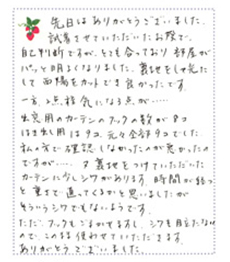 先日はありがとうございました。
試着させていただいたお陰で、
自己判断ですが、とても合っており部屋が
パッと明るくなりました。裏地をしゃ光にし
て西陽をカットでき良かったです。
一方、2点程気になる点が……
出窓用のカーテンのフックの数が8コ
はき出し用は9コ。元々全部9コでした。
私の方で確認しなかったのが悪かったの
ですが…… 又裏地をつけていただいた
カーテンに少しシワがあります。時間が経つ
と重さで直ってくるかと思いましたが
そういうシワでもないようです。
ただ、フックもごまかせますし、シワも目立たない
ので、このまま使わせていただきます。
ありがとうございました。